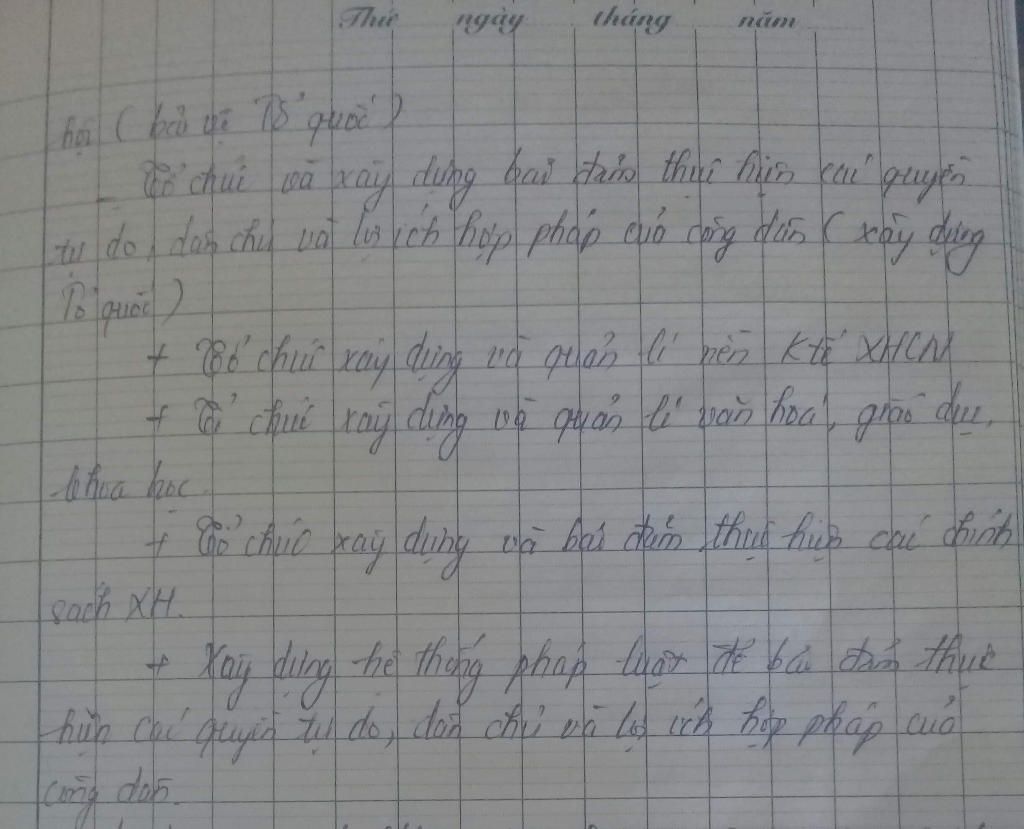 Thứ ngày tháng năm
hội (bảo vệ Tổ quốc)
- Tổ chức và xây dựng bảo đảm thực hiện các quyền
tự do, dân chủ và lợi ích hợp pháp của công dân (xây dựng
Tổ quốc)
+ Tổ chức xây dựng và quản lí nền Ktế XHCN
+ Tổ chức xây dựng và quản lí văn hoá, giáo dục,
khoa học.
+ Tổ chức xây dựng và bảo đảm thực hiện các chính
sách XH.
+ Xây dựng hệ thống pháp luật để bảo đảm thực
hiện các quyền tự do, dân chủ và lợi ích hợp pháp của
công dân.